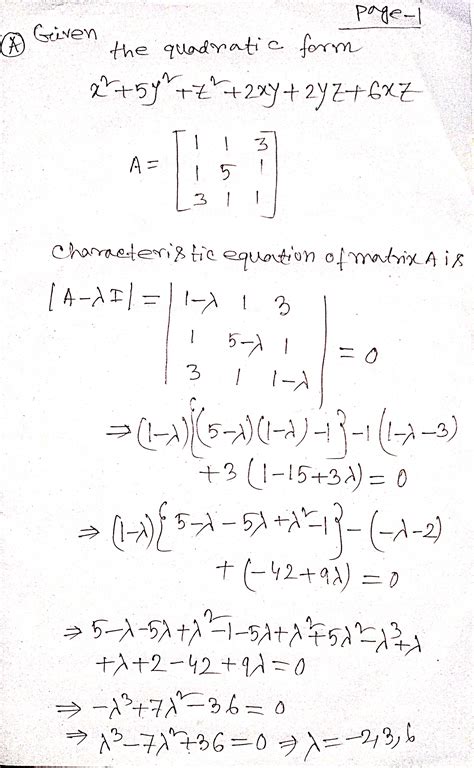 Page-1
Ⓐ Given the quadratic form
x²+5y²+z²+2xy+2yz+6xz
A = [1 1 3
1 5 1
3 1 1]
Characteristic equation of matrix A is
|A-λI| = |1-λ 1 3
1 5-λ 1
3 1 1-λ| = 0
⇒ (1-λ){(5-λ)(1-λ)-1}-1(1-λ-3)
+3(1-15+3λ)=0
⇒ (1-λ){5-λ-5λ+λ²-1}-(-λ-2)
+(-42+9λ)=0
⇒ 5-λ-5λ+λ²-1-5λ+λ²+5λ²-λ³+λ
+λ+2-42+9λ=0
⇒ -λ³+7λ²-36=0
⇒ λ³-7λ²+36=0 ⇒ λ=-2,3,6